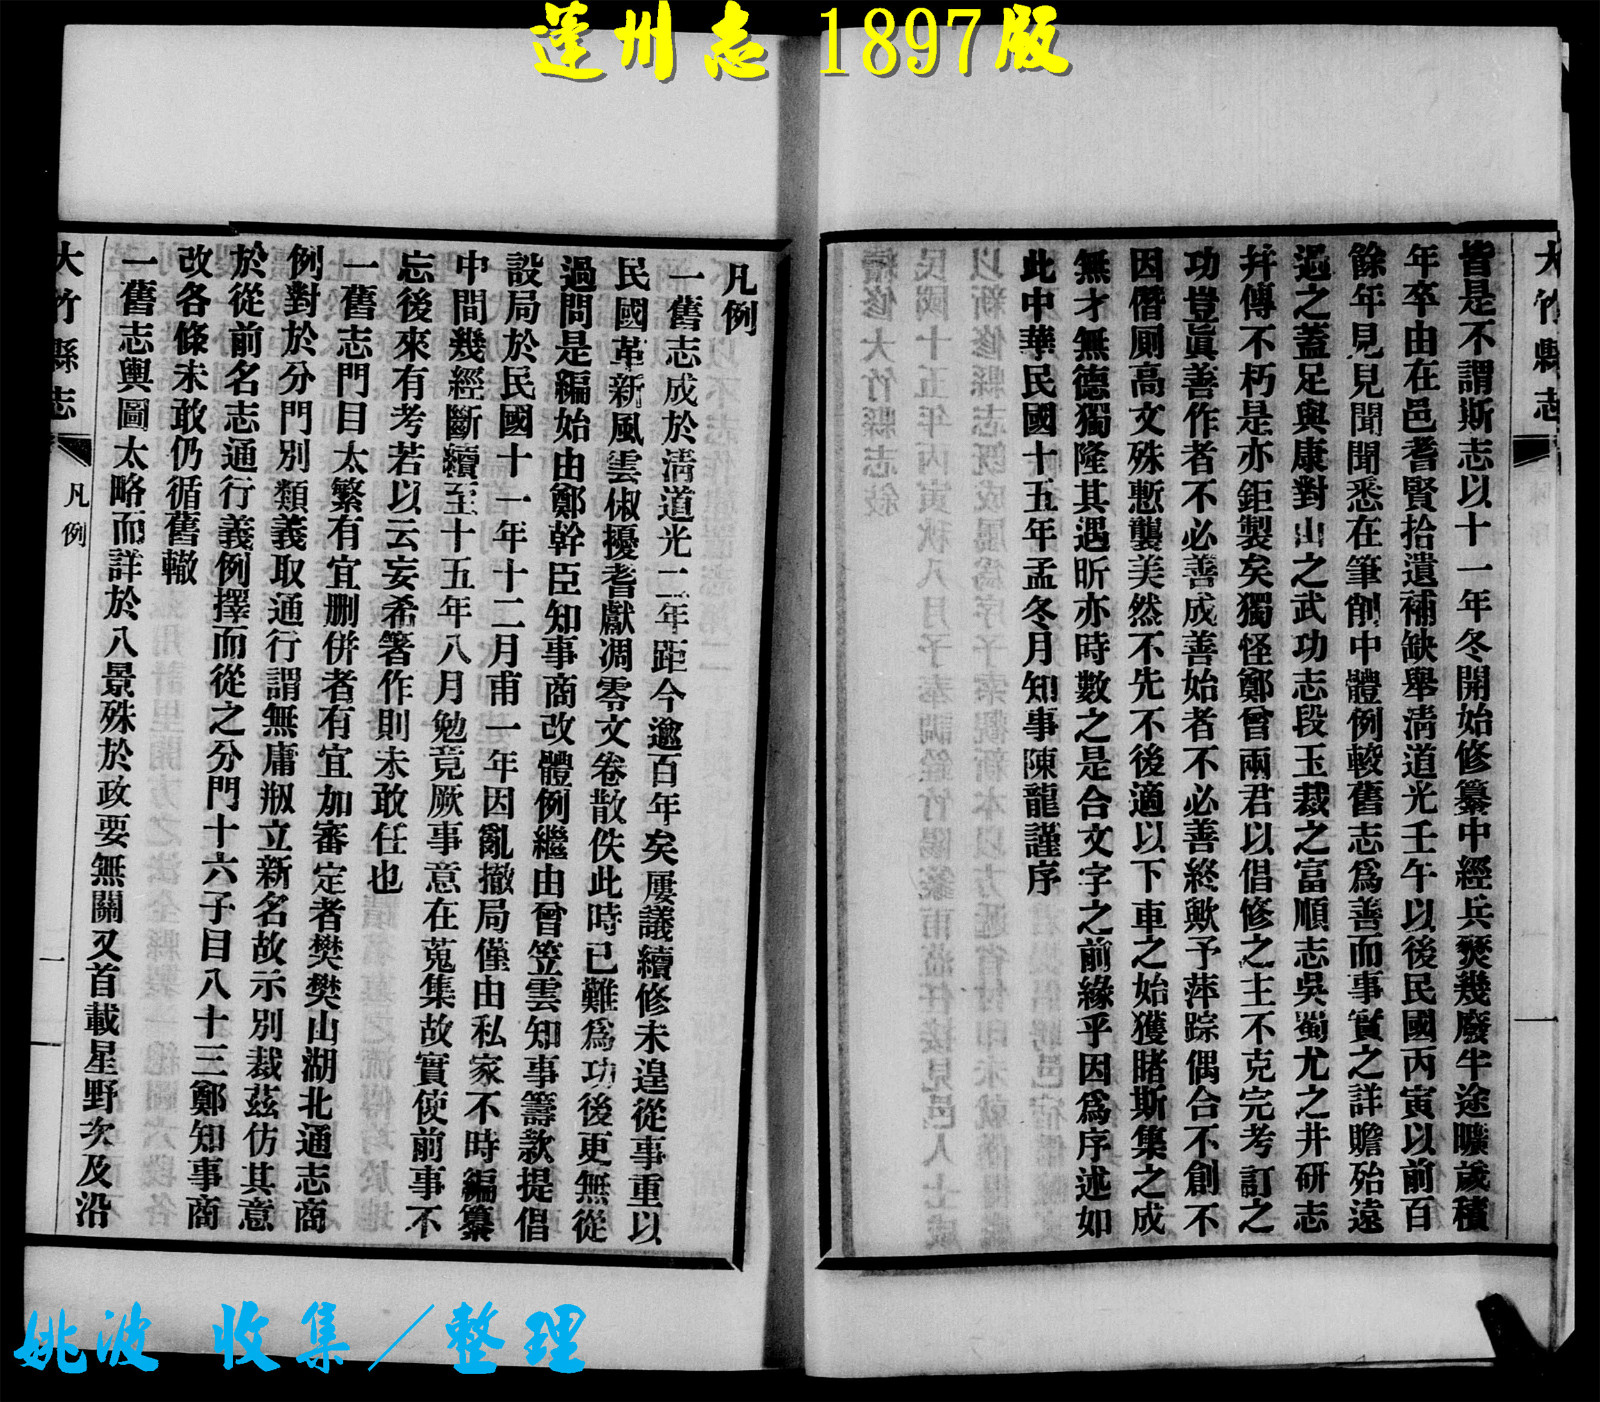 蓬州志 1897版
大竹縣志
皆是不謂斯志以十一年冬開始修纂中經兵燹幾廢半途曠歲積
年卒由在邑耆賢拾遺補缺舉清道光壬午以後民國丙寅以前百
餘年見見聞聞悉在筆削中體例較舊志爲善而事實之詳贍殆遠
過之蓋足與康對山之武功志段玉裁之富順志吳蜀尤之井研志
幷傳不朽是亦鉅製矣獨怪鄭曾兩君以倡修之主不克完考訂之
功豈眞善作者不必善成善始者不必善終歟予萍踪偶合不創不
因僭厠高文殊慙襲美然不先不後適以下車之始獲睹斯集之成
無才無德獨隆其遇昕亦時數之是合文字之前緣乎因爲序述如
此中華民國十五年孟冬月知事陳龍謹序
凡例
一舊志成於淸道光二年距今逾百年矣屢議續修未遑從事重以
民國革新風雲俶擾耆獻凋零文卷散佚此時已難爲功後更無從
過問是編始由鄭幹臣知事商改體例繼由曾笠雲知事籌款提倡
設局於民國十一年十二月甫一年因亂撤局僅由私家不時編纂
中間幾經斷續至十五年八月勉竟厥事意在蒐集故實使前事不
忘後來有考若以云妄希箸作則未敢任也
一舊志門目太繁有宜删併者有宜加審定者樊樊山湖北通志商
例對於分門別類義取通行謂無庸剙立新名故示別裁茲仿其意
於從前名志通行義例擇而從之分門十六子目八十三鄭知事商
改各條未敢仍循舊轍
一舊志輿圖太略而詳於八景殊於政要無關又首載星野次及沿
大竹縣志
凡例
一
姚波 收集／整理